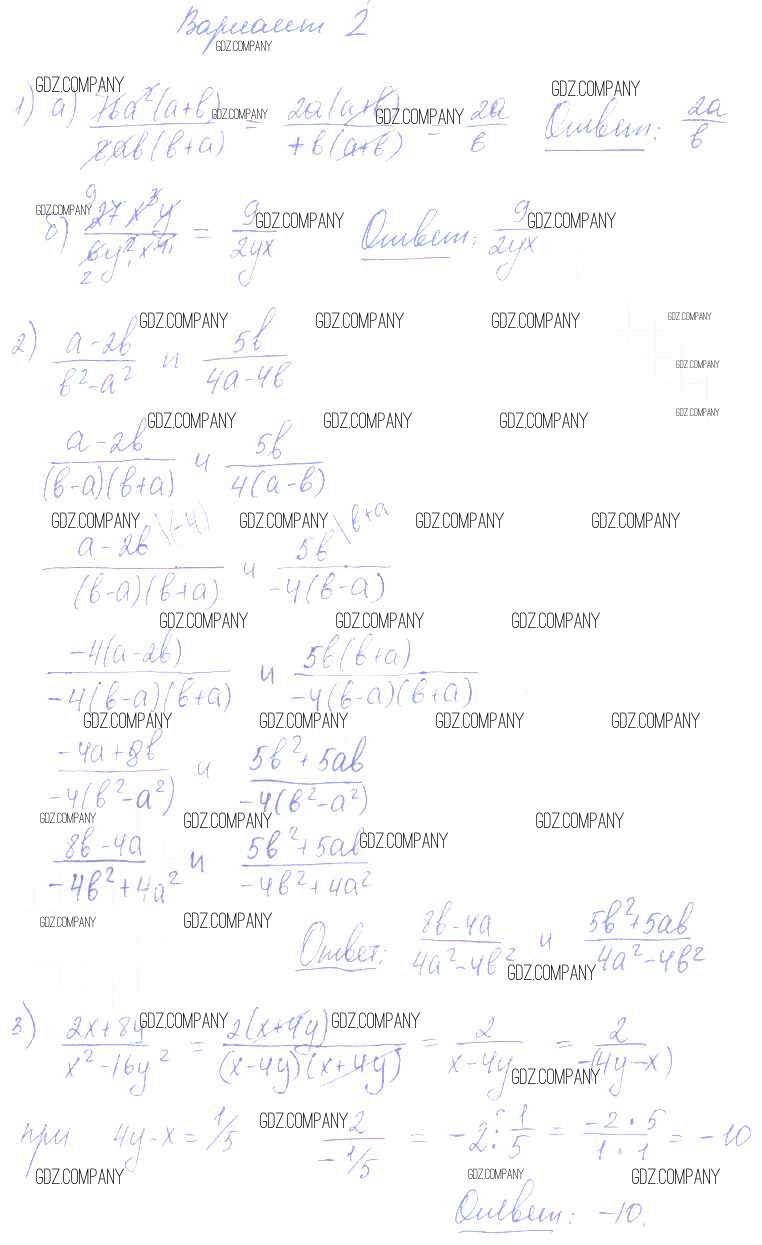 Вариант 2
GDZ.COMPANY
GDZ.COMPANY GDZ.COMPANY
1) а) 16a²(a+b) / 8ab(b+a) = 2a(a+b) / +b(a+b) = 2a/b Ответ: 2a/b
GDZ.COMPANY GDZ.COMPANY
GDZ.COMPANY GDZ.COMPANY GDZ.COMPANY
б) 27x³y / 6y²x⁴ = 9/2yx Ответ: 9/2yx
9 2
GDZ.COMPANY GDZ.COMPANY GDZ.COMPANY GDZ.COMPANY
2) a-2b / b²-a² и 5b / 4a-4b
GDZ.COMPANY
GDZ.COMPANY GDZ.COMPANY GDZ.COMPANY GDZ.COMPANY
a-2b / (b-a)(b+a) и 5b / 4(a-b)
GDZ.COMPANY GDZ.COMPANY GDZ.COMPANY GDZ.COMPANY
a-2b \(-4) / (b-a)(b+a) и 5b \b+a / -4(b-a)
GDZ.COMPANY GDZ.COMPANY GDZ.COMPANY
-4(a-2b) / -4(b-a)(b+a) и 5b(b+a) / -4(b-a)(b+a)
GDZ.COMPANY GDZ.COMPANY GDZ.COMPANY GDZ.COMPANY
-4a+8b / -4(b²-a²) и 5b²+5ab / -4(b²-a²)
GDZ.COMPANY GDZ.COMPANY GDZ.COMPANY
8b-4a / -4b²+4a² и 5b²+5ab / -4b²+4a²
GDZ.COMPANY
GDZ.COMPANY GDZ.COMPANY
Ответ: 8b-4a / 4a²-4b² и 5b²+5ab / 4a²-4b²
GDZ.COMPANY
GDZ.COMPANY GDZ.COMPANY
3) 2x+8y / x²-16y² = 2(x+4y) / (x-4y)(x+4y) = 2 / x-4y = 2 / -(4y-x)
GDZ.COMPANY
при 4y-x = 1/5 2 / -1/5 = -2 : 1/5 = -2·5 / 1·1 = -10
GDZ.COMPANY
GDZ.COMPANY GDZ.COMPANY GDZ.COMPANY
Ответ: -10.